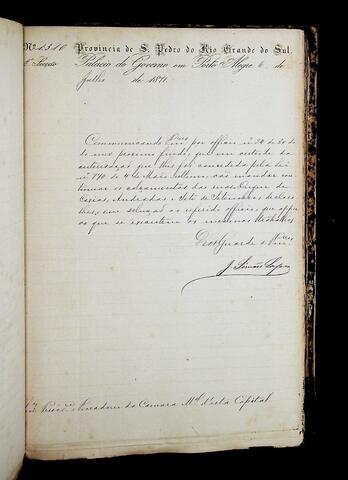 Nº 1510 Provincia de S. Pedro do Rio Grande do Sul.
Palacio do Governo em Porto Alegre 6 de
Julho de 1871.
Communicando V.ces por officio nº 34 de 30 do
mez proximo findo, que em virtude da
autorisação que lhes foi concedida pela lei
nº 770 de 4 de Maio ultimo, vão mandar con-
tinuar os calçamentos das ruas Duque de
Caxias, Andradas e Sete de Setembro, declaro-
lhes, em solução ao referido officio, que appro-
vo que se executem os mesmos trabalhos.
Deos Guarde a V.ces
J. Simões Lopes
Presid.e e Vereadores da Camara M.al d'esta Capital.